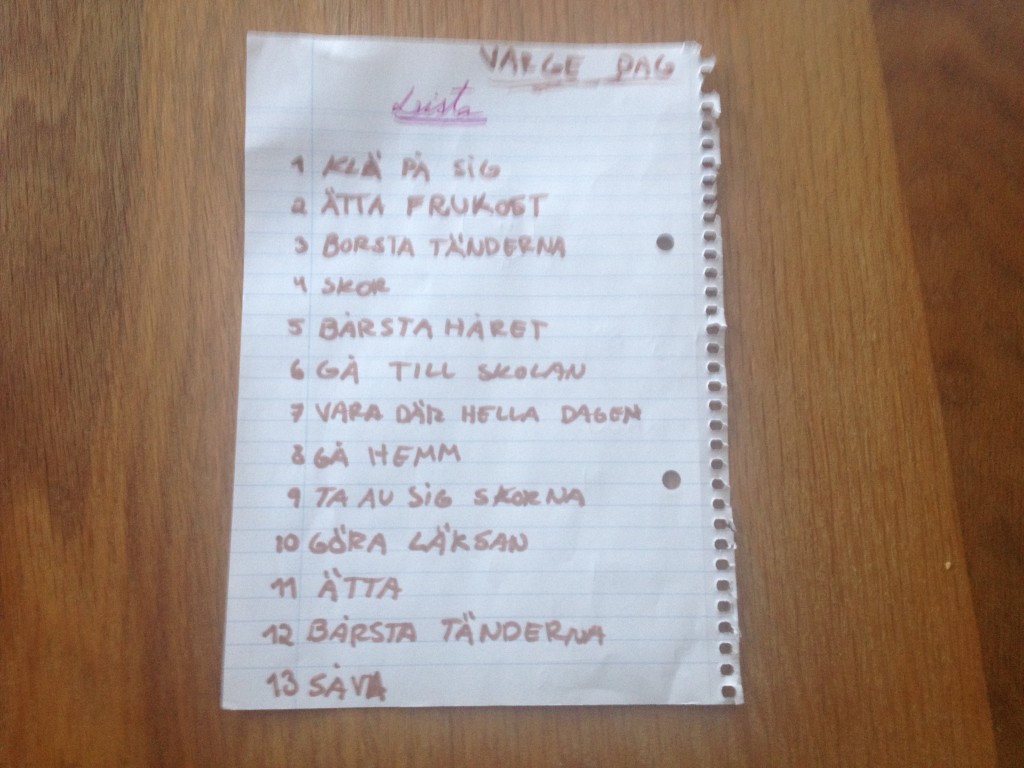 VARGE DAG
Lista
1 KLÄ PÅ SIG
2 ÄTTA FRUKOST
3 BORSTA TÄNDERNA
4 SKOR
5 BÅRSTA HÅRET
6 GÅ TILL SKOLAN
7 VARA DÄR HELLA DAGEN
8 GÅ HEMM
9 TA AV SIG SKORNA
10 GÖRA LÄKSAN
11 ÄTTA
12 BÅRSTA TÄNDERNA
13 SÅVA